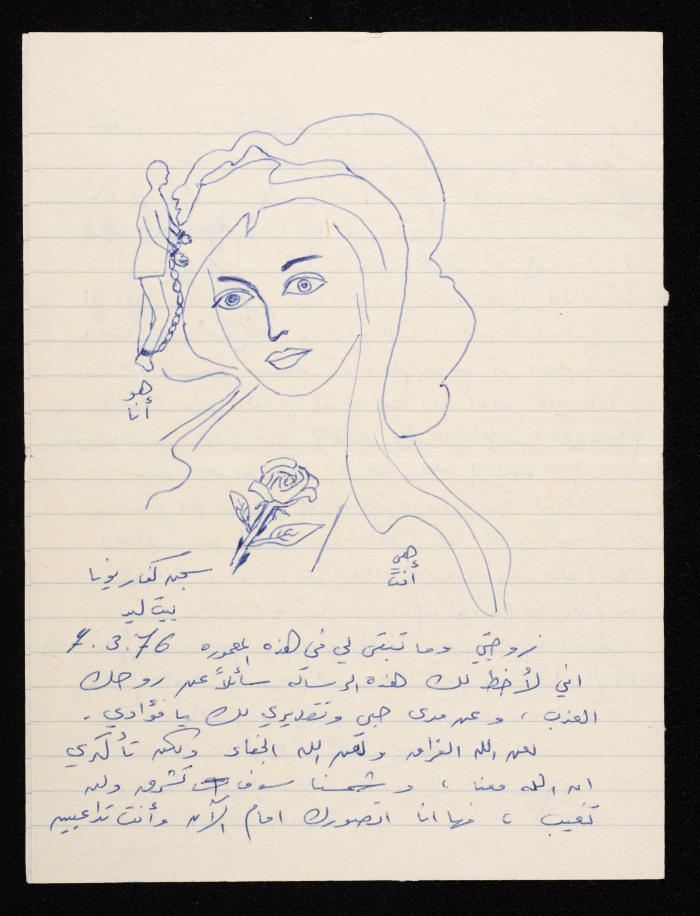 هو
أنا
هي
أنت
سجن كفار يونا
بيت ليد
زوجتي وما تبقى لي في هذه المعموره 7.3.76
اني لأخط لك هذه الرساله سائلاً عن روحك
العذب، وعن مدى حبي وتقديري لك يا فؤادي.
لعن الله الفراق ولعن الله الجفاء ولكن تأكدي
ان الله معنا، وشمسنا سوف تشرق ولن
تغيب، فها انا اتصورك امام الآن وأنت تداعبين